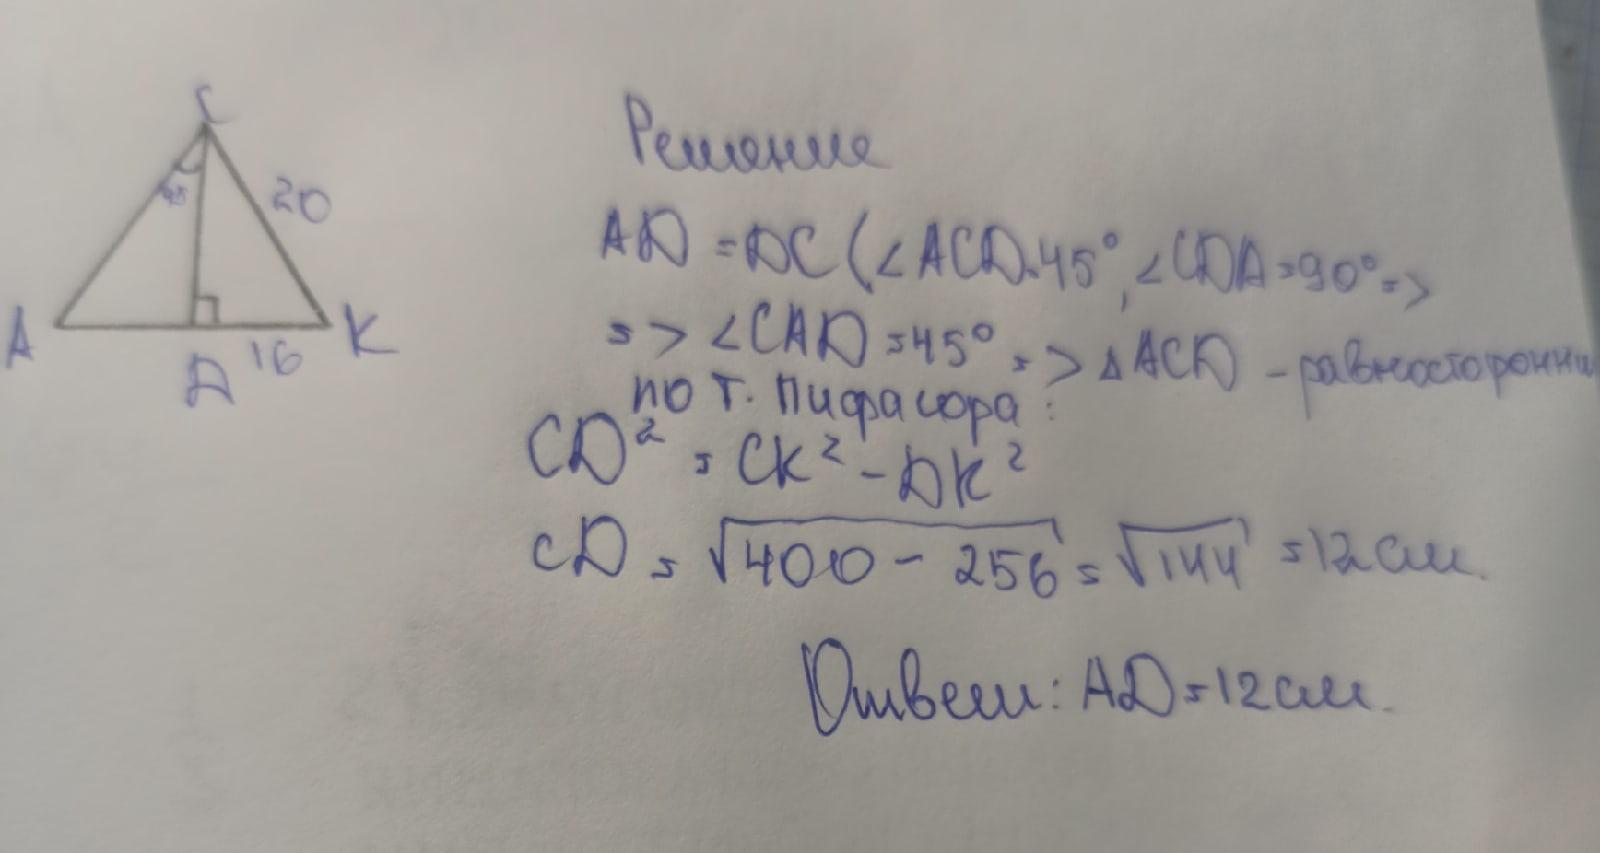 C
45
20
A
D
16
K
Решение
AD = DC (∠ACD=45°, ∠CDA=90° =>
=> ∠CAD=45° => △ACD - равносторонни
по т. Пифагора:
CD² = CK² - DK²
CD = √400 - 256 = √144 = 12 см.
Ответ: AD = 12 см.